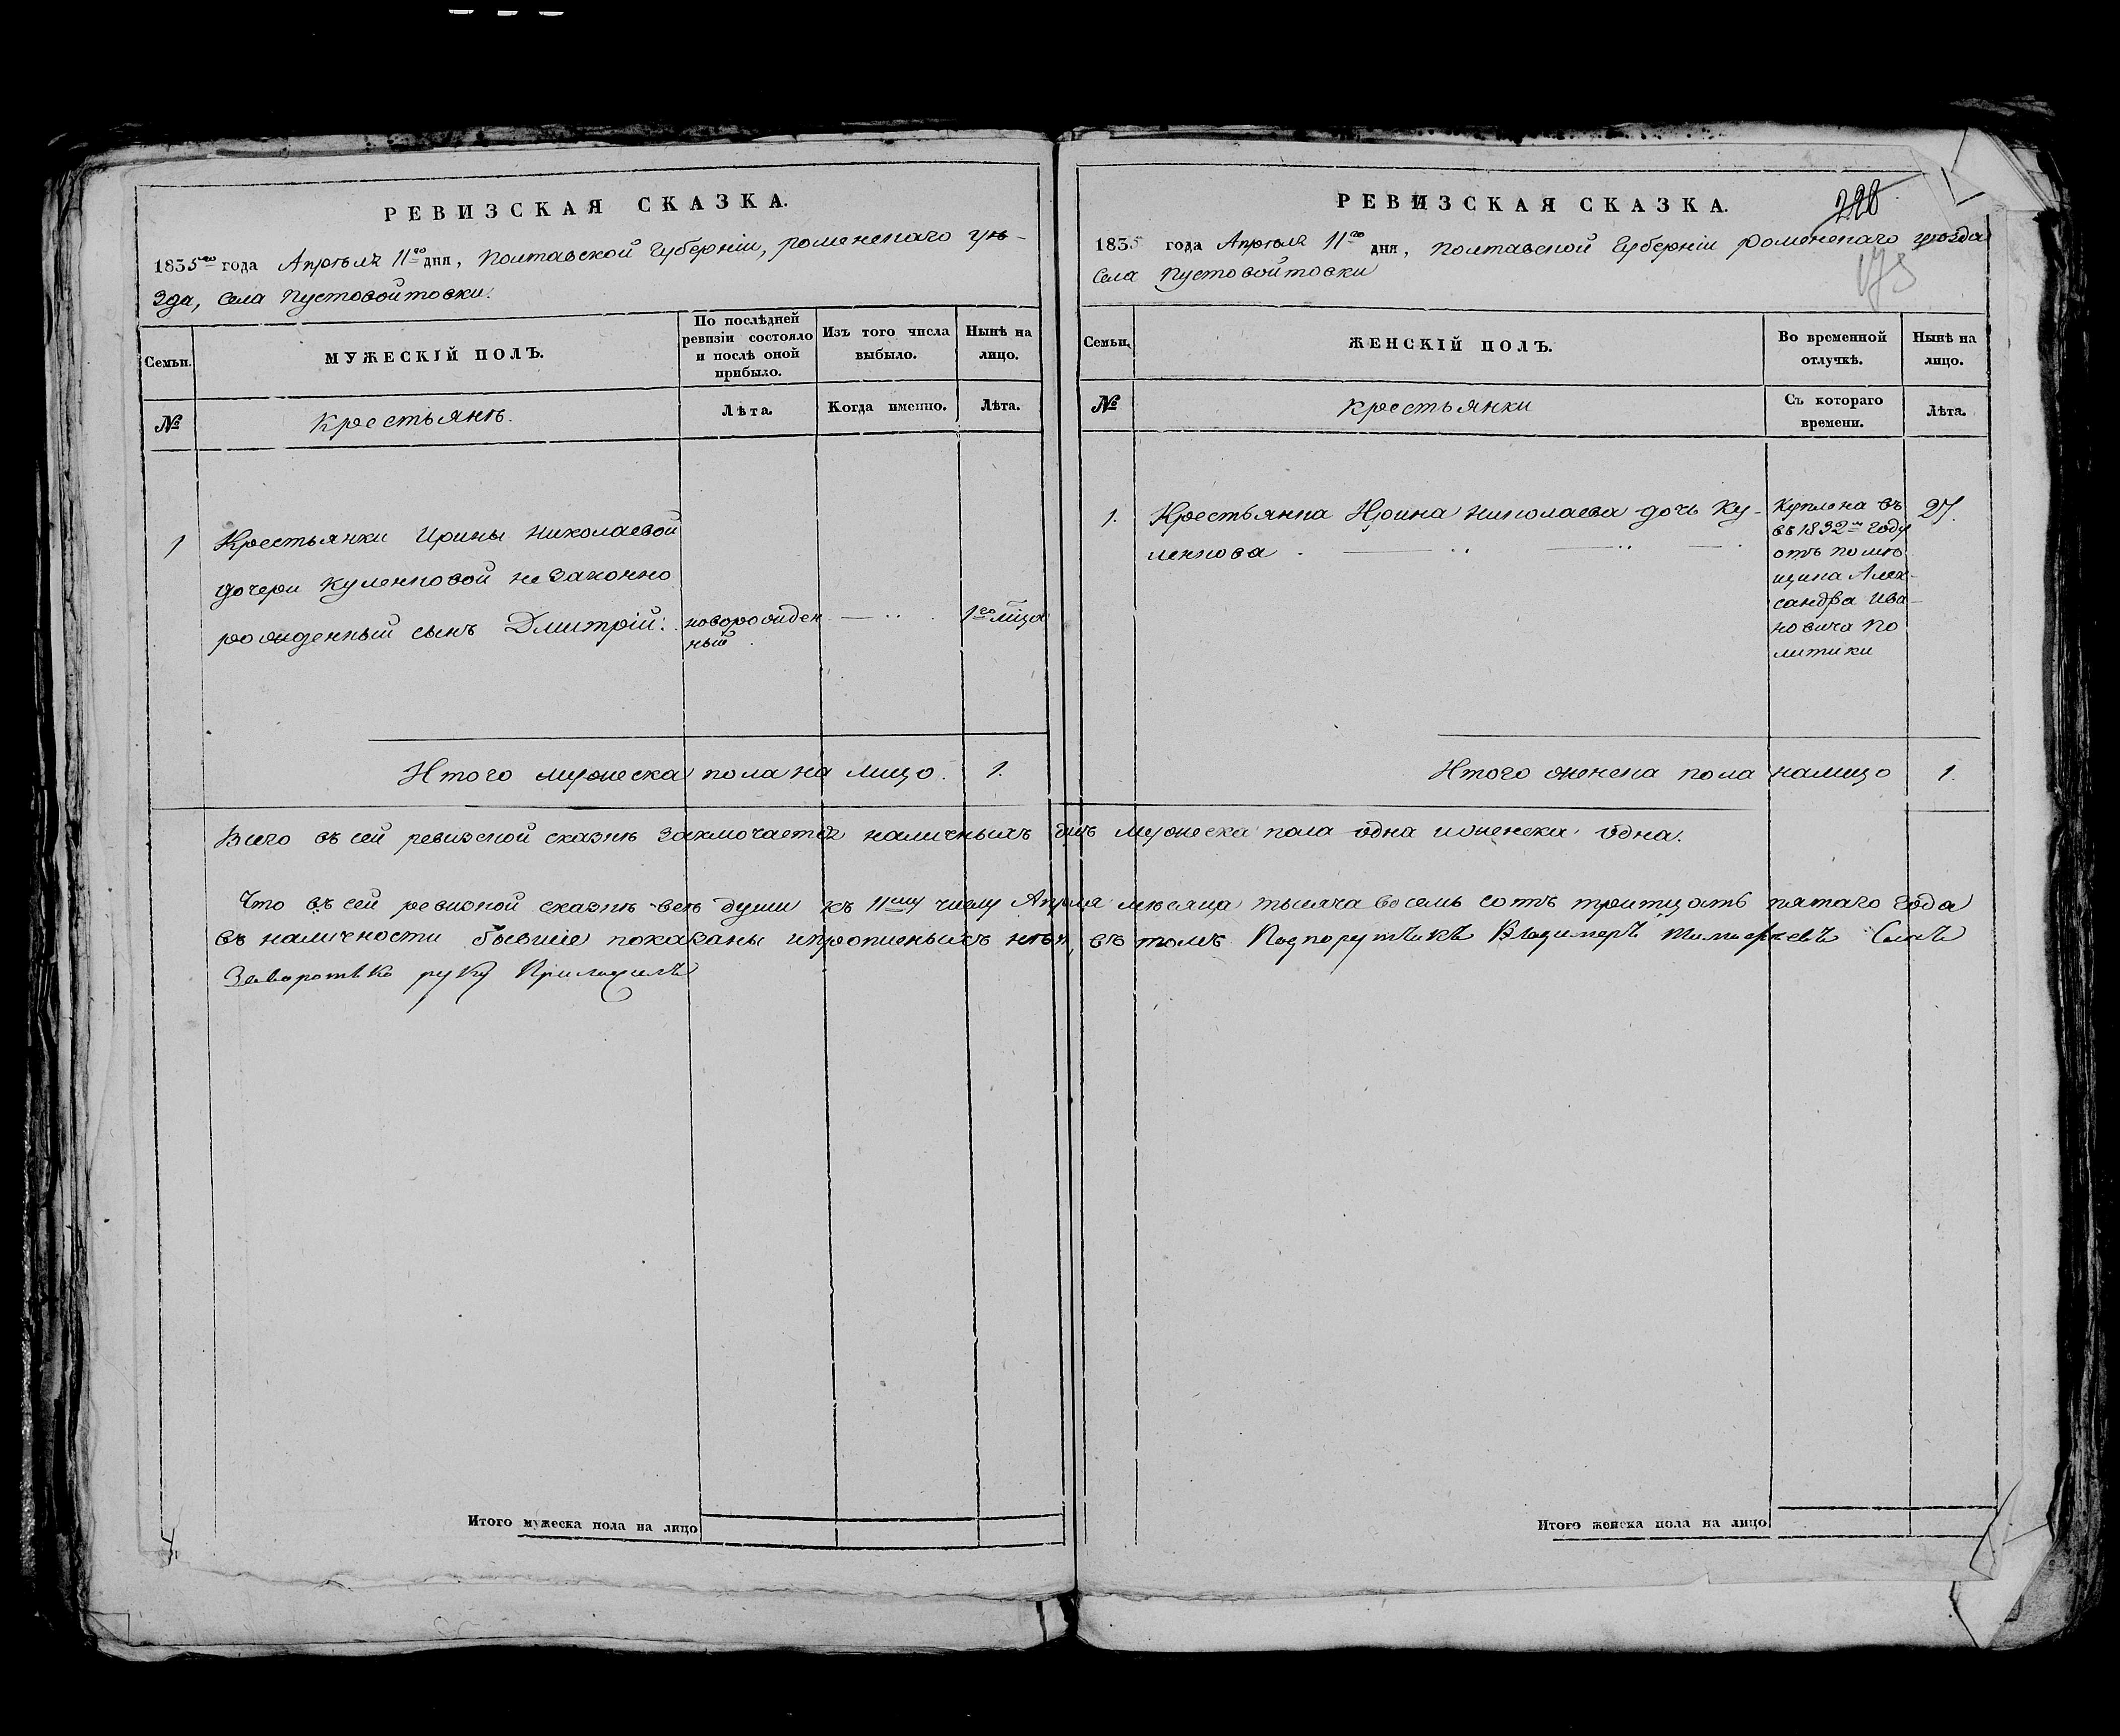 РЕВИЗСКАЯ СКАЗКА.
1835го года Апрѣля 11го дня, Полтавской Губерніи, роменскаго уѣ-
зда, села Пустовойтовки.
Семьи.
МУЖЕСКІЙ ПОЛЪ.
По послѣдней ревизіи состояло и послѣ оной прибыло.
Изъ того числа выбыло.
Нынѣ на лицо.
№
Крестьянъ.
Лѣта.
Когда именно.
Лѣта.
1
Крестьянки Ирины Николаевой
дочери Куленковой незаконно
рожденный сынъ Дмитрій.
новорожден
ный
1го
Итого мужеска пола на лицо. 1.
РЕВИЗСКАЯ СКАЗКА.
220
1835 года Апрѣля 11го дня, Полтавской Губерніи роменскаго уѣзда
села Пустовойтовки
Семьи.
ЖЕНСКІЙ ПОЛЪ.
Во временной отлучкѣ.
Нынѣ на лицо.
№
Крестьянки
Съ котораго времени.
Лѣта.
1.
Крестьянка Ирина Николаева дочь Ку-
ленкова
Куплена въ
въ 1832м году
отъ помѣ
щика Алек-
сандра Ива-
новича По
литики
27.
Итого женска пола налицо 1.
Всего въ сей ревизской сказкѣ заключается наличныхъ душъ мужеска пола одна и женска одна.
Что въ сей ревизкой сказкѣ всѣ души къ 11му числу Апреля мѣсяца тысяча восемь сотъ тритцать пятаго года
въ наличности бывшіе показаны и прописныхъ нѣтъ, въ томъ Подпорутчикъ Владимеръ Тимофѣевъ Сынъ
Заворотько руку Приложилъ
Итого мужеска пола на лицо
Итого женска пола на лицо